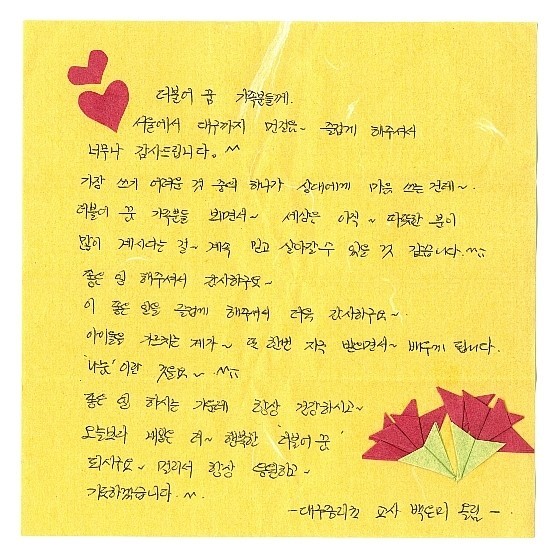 더불어 꿈 가족분들께.
서울에서 대구까지 먼길을~ 즐겁게 해주셔서
너무나 감사드립니다. ^^
가장 쓰기 어려운 것 중의 하나가 상대에게 마음 쓰는 건데~.
더불어 꿈 가족분들 뵈면서~ 세상은 아직~ 따뜻한 분이
많이 계시다는 걸~ 계속 믿고 살아갈 수 있을 것 같습니다. ^^
좋은 일 해주셔서 감사하구요~
이 좋은 일을 즐겁게 해주셔서 더욱 감사하구요~.
아이들을 가르치는 제가~ 또 한번 자극 받으면서~ 배우게 됩니다.
'나눔'이란 것을요~ ^^
좋은 일 하시는 가운데 항상 건강하시고~
오늘보다 내일은 더~ 행복한 '더불어 꿈'
되시구요~ 멀리서 항상 응원하고~
기도하겠습니다. ^^
-대구중리초 교사 드림-